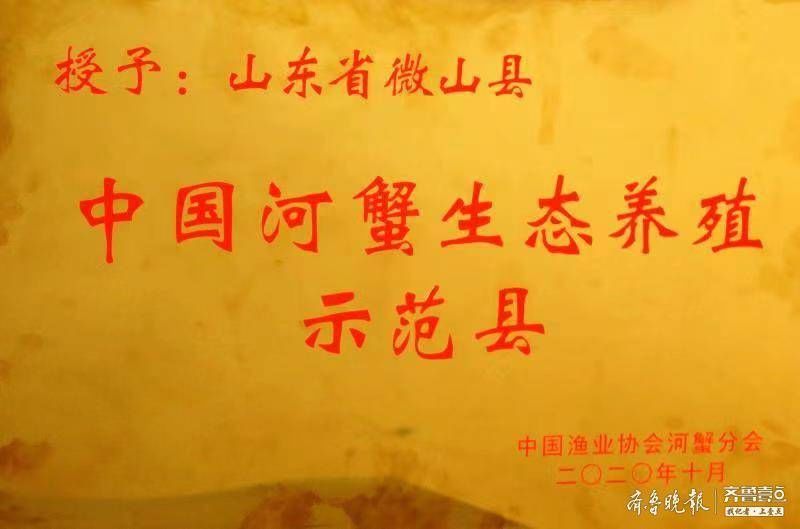 授予：山东省微山县
中国河蟹生态养殖
示范县
中国渔业协会河蟹分会
二〇二〇年十月
齐鲁晚报
齐鲁壹点
我亿者·上壹点